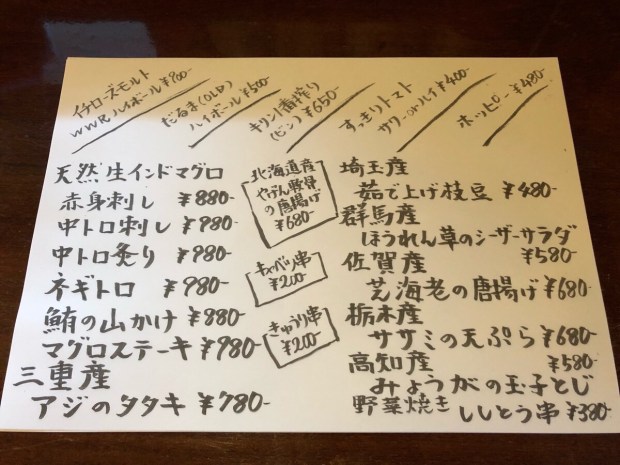 イチローズモルト
WWRハイボール ¥900
だるま(OLD)
ハイボール ¥500
キリン一番搾り
(ビン) ¥650
すっきりトマト
サワーorハイ ¥400
ホッピー ¥480-
天然生インドマグロ
赤身刺し ¥880-
中トロ刺し ¥980
中トロ炙り ¥980
ネギトロ ¥980-
鮪の山かけ ¥880-
マグロステーキ ¥980-
三重産
アジのタタキ ¥780-
北海道産
やげん軟骨
の唐揚げ
¥680-
キャベツ串
¥200-
きゅうり串
¥200-
埼玉産
茹で上げ枝豆 ¥480
群馬産
ほうれん草のシーザーサラダ
¥580
佐賀産
芝海老の唐揚げ ¥680
栃木産
ササミの天ぷら ¥680
高知産 ¥580-
みょうがの玉子とじ
野菜焼き ししとう串 ¥380-